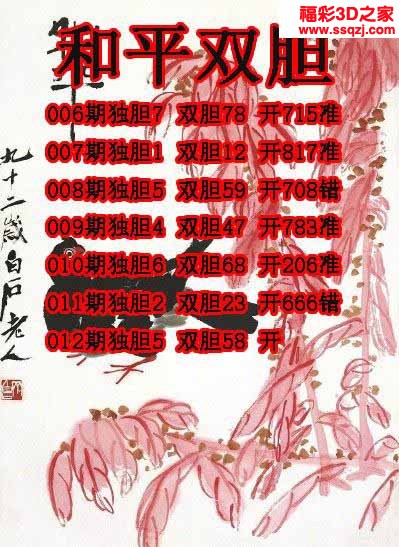 福彩3D之家
www.ssqzj.com
和平双胆
006期独胆7 双胆78 开715准
007期独胆1 双胆12 开817准
008期独胆5 双胆59 开708错
009期独胆4 双胆47 开783准
010期独胆6 双胆68 开206准
011期独胆2 双胆23 开666错
012期独胆5 双胆58 开
九十二岁白石老人